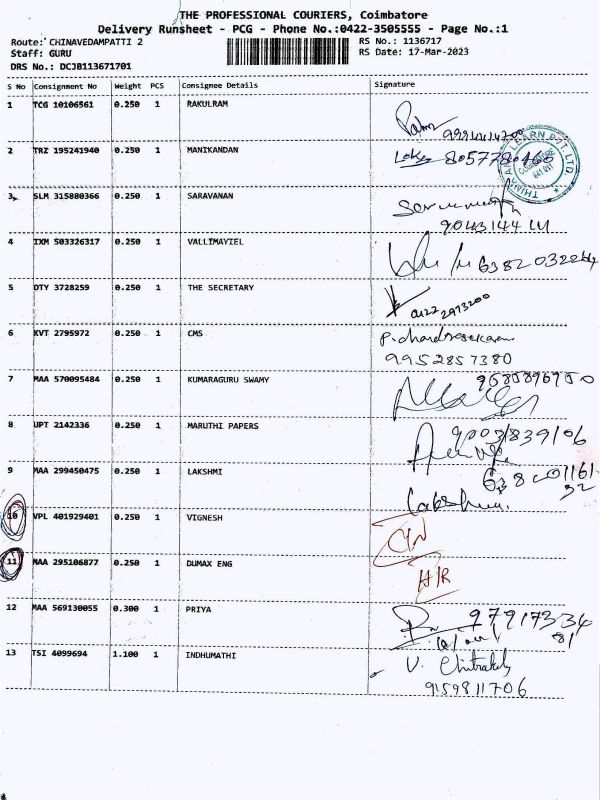 THE PROFESSIONAL COURIERS, Coimbatore
Delivery Runsheet - PCG - Phone No.:0422-3505555 - Page No.:1
Route: CHINAVEDAMPATTI 2 RS No.: 1136717
Staff: GURU RS Date: 17-Mar-2023
DRS No.: DCJB113671701
S No Consignment No Weight PCS Consignee Details Signature
1 TCG 10106561 0.250 1 RAKULRAM
2 TRZ 195241940 0.250 1 MANIKANDAN 8057780460
3 SLM 315880366 0.250 1 SARAVANAN
4 IXM 503326317 0.250 1 VALLIMAYIEL
5 DTY 3728259 0.250 1 THE SECRETARY 0422 2973200
6 KVT 2795972 0.250 1 CMS P. chandrasekaran
9952857380
7 MAA 570095484 0.250 1 KUMARAGURU SWAMY
8 UPT 2142336 0.250 1 MARUTHI PAPERS 9003839106
9 MAA 299450475 0.250 1 LAKSHMI 638001161
32
10 VPL 401929401 0.250 1 VIGNESH
11 MAA 295106877 0.250 1 DUMAX ENG H/R
12 MAA 569130055 0.300 1 PRIYA 97917334
81
13 TSI 4099694 1.100 1 INDHUMATHI
9159811706